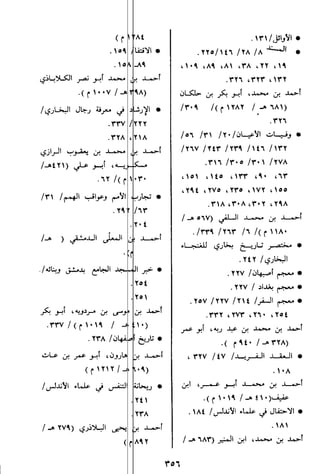 * الأوائل/ ١٣١.
* المسند ٨/ ٢٨/ ١٤٦/ ٢٢٥.
١٩، ٢٢، ٣٨، ٨١، ٨٩، ١٠٩،
١٣٢، ٣٢٣، ٣٢٦.
أحمد بن محمد، أبو بكر بن خلكان
(٦٨١ هـ / ١٢٨٢ م)/ ٣٠٩/
٣٢٦.
* وفيات الأعيان/ ٢٠/ ٣١/ ٥٦/
١٣٢/ ١٤٦/ ٢٣٩/ ٢٤٣/ ٢٦٧/
٢٧٨/ ٣٠١/ ٣٠٥/ ٣١٦.
٦٣، ٩٠، ١٣٣، ١٤٥، ١٥١،
١٥٥، ١٧٢، ٢٣٥، ٢٧٥، ٢٩٤،
٢٩٨، ٣٠٢، ٣٠٨، ٣١٨.
أحمد بن محمد السلفي (٥٦٧ هـ/
١١٨٠ م)/ ٦/ ٢٦٣/ ٣٣٩/.
* مختصر تاريخ بخاري للغنجاء
البخاري/ ٢٤٢.
* معجم أصبهان/ ٢٢٧.
* معجم بغداد / ٢٢٧.
* معجم السفر/ ٢١٤/ ٢٢٧/ ٢٥٧.
٢٥٤، ٢٦٠، ٢٧٣، ٣٣٢.
أحمد بن محمد بن عبد ربه، أبو عمر
(٣٢٨ هـ / ٩٤٠ م).
* العقد الفريد/ ٤٧/ ٣٢٧،
١٠٨.
أحمد بن محمد أبو عمر، ابن
عفيف (٤١٠ هـ/ ١٠١٩ م).
* الاحتفال في علماء الأندلس/ ١٨٤.
١٨١.
أحمد بن محمد، ابن المنير (٦٨٣ هـ /
١٢٨٤ م)
* الاقتفا/ ١٥٩.
٨٩، ١٥٨.
أحمد بن محمد أبو نصر الكلاباذي
(٣٩٨ هـ / ١٠٠٧ م).
* الإرشاد في معرفة رجال البخاري/
٢٢٢/ ٣٣٧.
٢١٨، ٣٢٨.
أحمد بن محمد بن يعقوب الرازي
مسكويه، أبو علي (٤٢١ هـ/
١٠٣٠ م)/ ٦٢.
* تجارب الأمم وعواقب الهمم/ ٣١/
٦٣/ ٢٩٢.
٢٠٤.
أحمد بن المعلى الدمشقي ( هـ/
م).
* خبر المسجد الجامع بدمشق وبنائه/.
٢٥٤.
٢٥١.
أحمد بن موسى بن مردويه، أبو بكر
(٤١٠ هـ / ١٠١٩ م) / ٣٣٧.
* تاريخ أصفهان/ ٢٣٨.
أحمد بن هارون، أبو عمر بن عات
(٦٠٩ هـ/ ١٢١٢ م)
* ريحانة التنفس في علماء الأندلس/
٢٤١.
٢٣٨.
أحمد بن يحيى البلاذري (٢٧٩ هـ/
٨٩٢ م)
٣٥٦